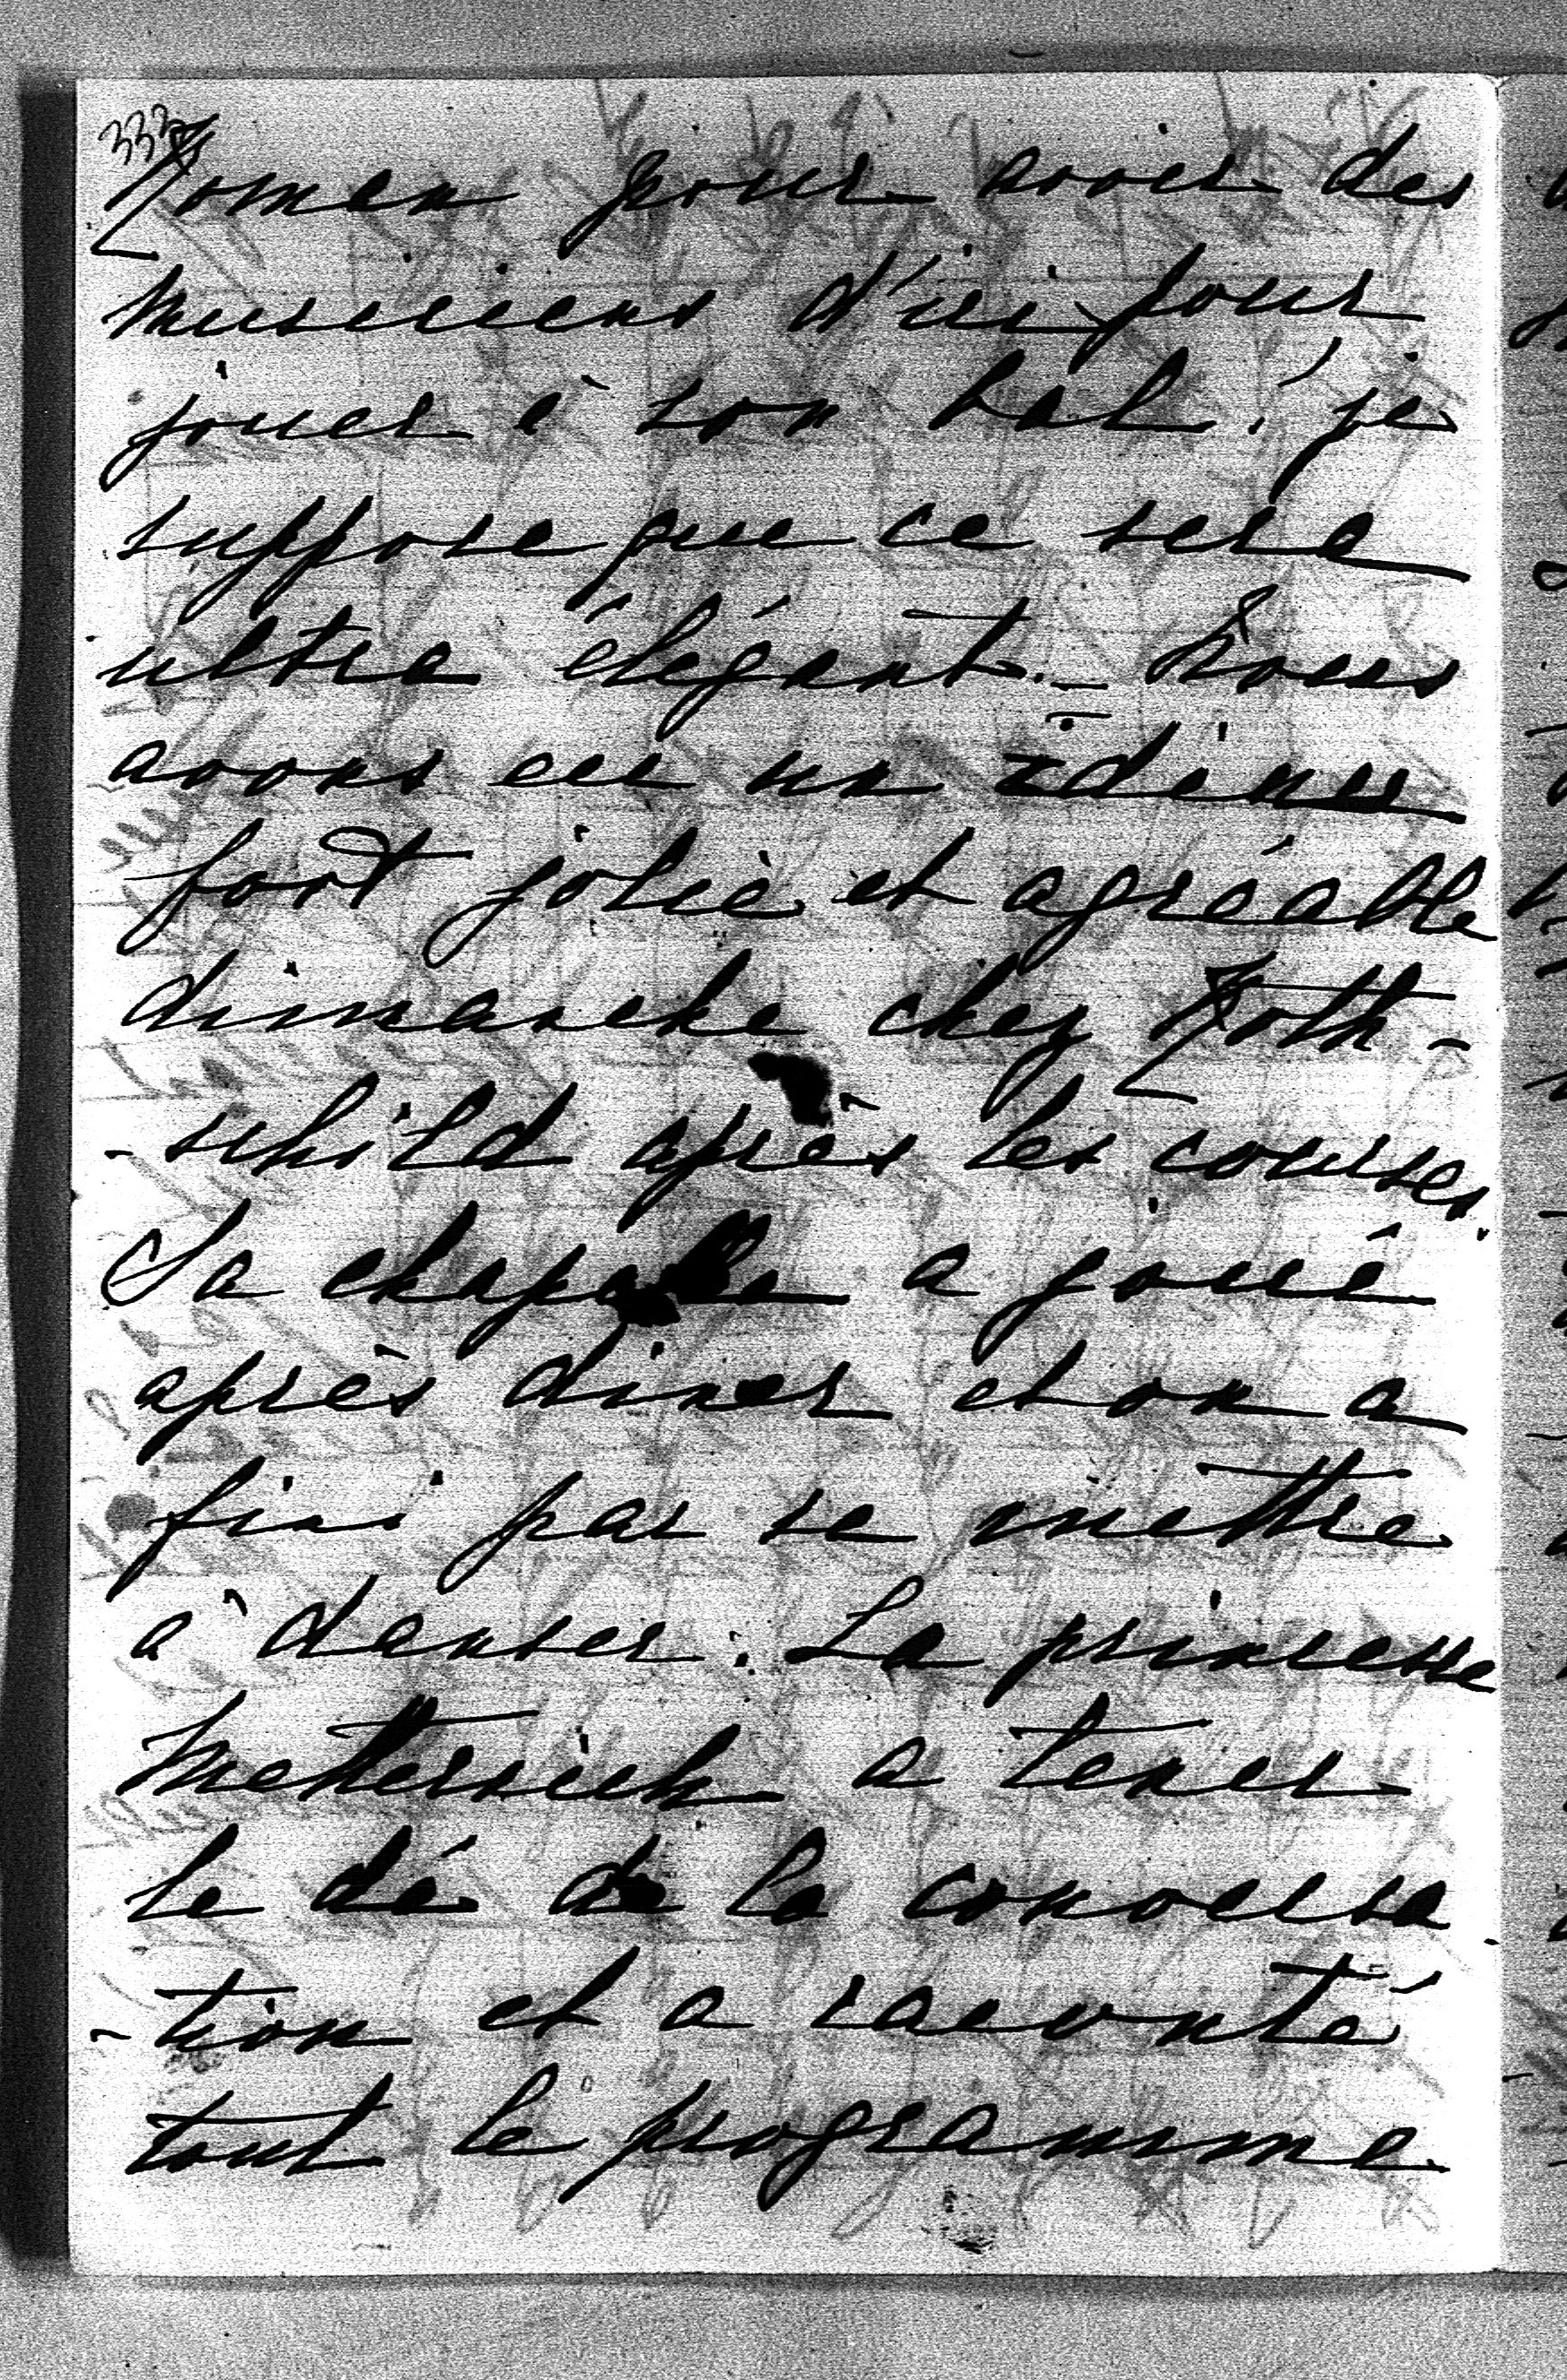 333
Roman pour avoir des
musiciens d'ici pour
jouer à son bal. je
suppose que ce sera
ultra élégant. _ Nous
avons eu un dîner
fort jolie et agréable
dimanche chez Roth-
-schild après les courses.
Sa chapelle a joué
après diner et on a
fini par se mettre
à danser. La princesse
Metternich a tenu
le dé de la conversa
-tion et a raconté
tout le programme